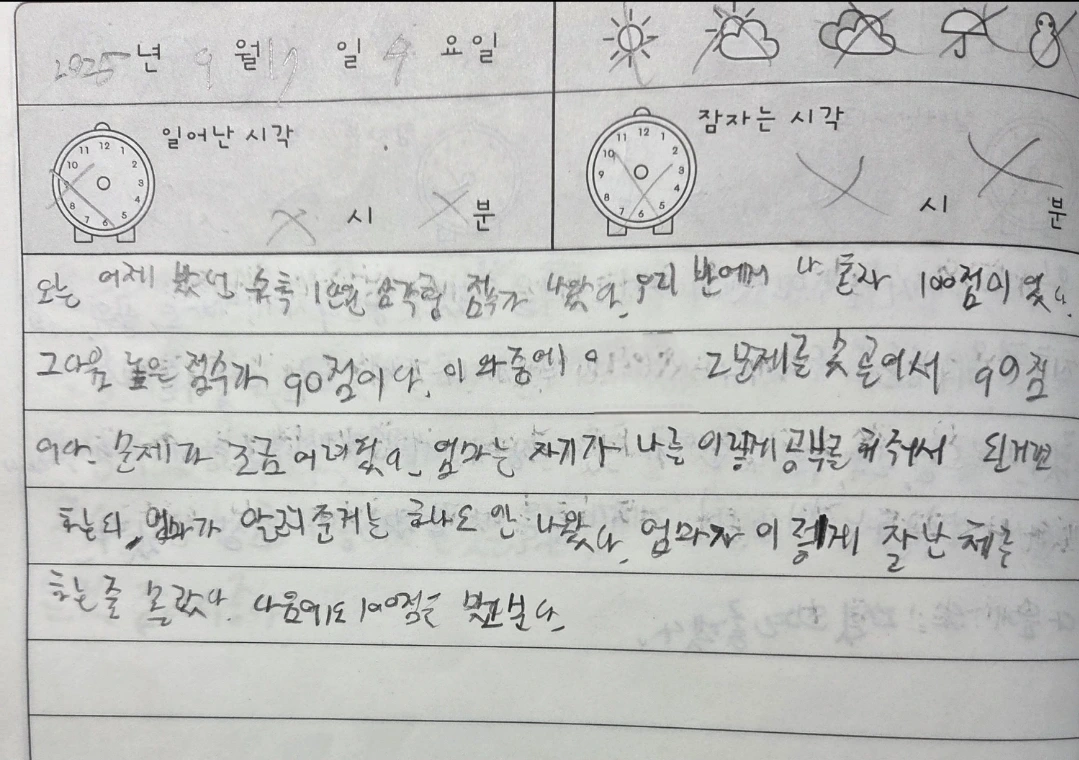 2025년 9월 17일 수요일
일어난 시각
시 분
잠자는 시각
시 분
11 12 1 10 2 3 8 4 7 6 5
11 12 1 10 2 9 3 8 4 7 6 5
오늘 어제 봤던 수학 단원 삼각형 점수가 나왔다. 우리 반에서 나 혼자 100점이였다.
그다음 높은 점수가 90점이다. 이 와중에 2문제를 못 골여서 90점
문제가 조금 어려웠다. 엄마는 자기가 나를 이렇게 공부를 해줘서 된거면
하는데, 엄마가 알려준거는 하나도 안 나왔다. 엄마가 이렇게 잘난 체를
하는 줄 몰랐다. 다음에도 100점을 맞고싶다.